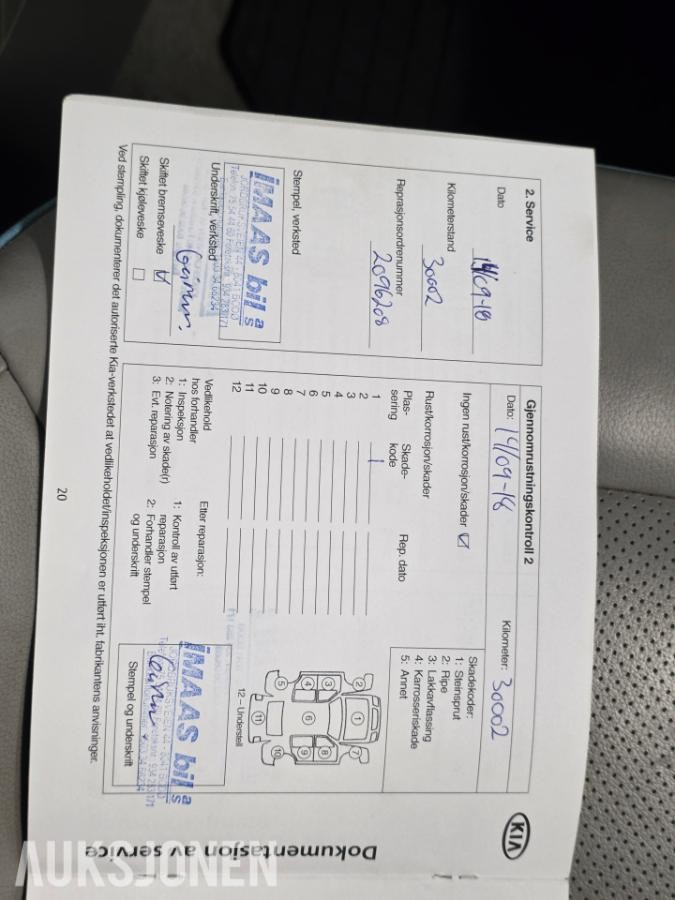 Dokumentasjon av service
KIA
2. Service
Dato 14/09-18
Kilometerstand 30002
Reprasjonsordrenummer 2096208
Stempel, verksted
iMAAS bil a/s
Underskrift, verksted
Skiftet bremsevæske
Skiftet kjølevæske
Gjennomrustningskontroll 2
Dato: 14/09-18 Kilometer: 30002
Ingen rust/korrosjon/skader
Rust/korrosjon/skader
Plas- Skade- Rep. dato
sering kode
1
2
3
4
5
6
7
8
9
10
11
12
Skadekoder:
1: Steinsprut
2: Ripe
3: Lakkavflassing
4: Karrosseriskade
5: Annet
1
2
3
4
5
6
7
8
9
10
11
12 – Understell
Vedlikehold
hos forhandler
1: Inspeksjon
2: Notering av skade(r)
3: Evt. reparasjon
Etter reparasjon:
1: Kontroll av utført
reparasjon
2: Forhandler stempel
og underskrift
iMAAS bil a/s
Stempel og underskrift
Ved stempling, dokumenterer det autoriserte Kia-verkstedet at vedlikeholdet/inspeksjonen er utført iht. fabrikantens anvisninger.
20
AUKSJONEN